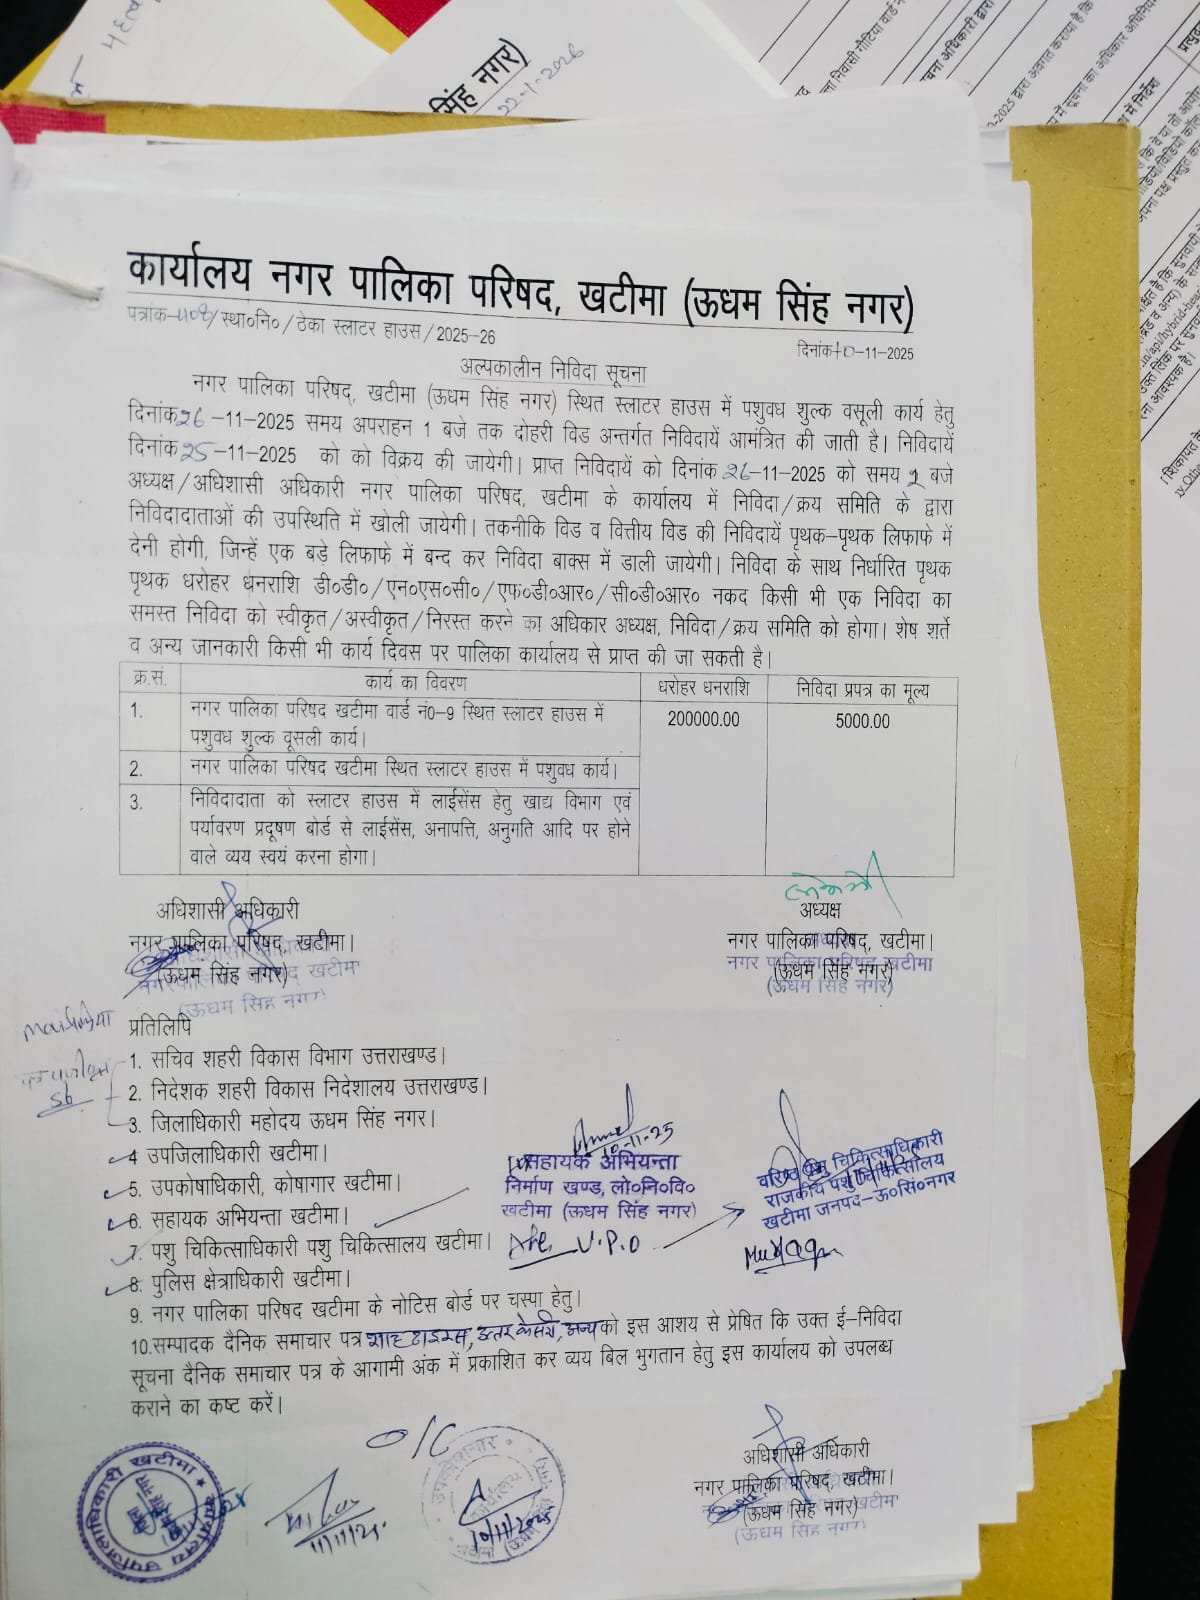 सिंह नगर)
22-1-2026
कार्यालय नगर पालिका परिषद, खटीमा (ऊधम सिंह नगर)
पत्रांक-408/स्था०नि०/ठेका स्लाटर हाउस/2025-26
दिनांक10-11-2025
अल्पकालीन निविदा सूचना
नगर पालिका परिषद, खटीमा (ऊधम सिंह नगर) स्थित स्लाटर हाउस में पशुवध शुल्क वसूली कार्य हेतु
दिनांक26-11-2025 समय अपराहन 1 बजे तक दोहरी विड अन्तर्गत निविदायें आमंत्रित की जाती है। निविदायें
दिनांक25-11-2025 को को विक्रय की जायेगी। प्राप्त निविदायें को दिनांक 26-11-2025 को समय 2 बजे
अध्यक्ष/अधिशासी अधिकारी नगर पालिका परिषद, खटीमा के कार्यालय में निविदा/क्रय समिति के द्वारा
निविदादाताओं की उपस्थिति में खोली जायेगी। तकनीकि विड व वित्तीय विड की निविदायें पृथक-पृथक लिफाफे में
देनी होगी, जिन्हें एक बड़े लिफाफे में बन्द कर निविदा बाक्स में डाली जायेगी। निविदा के साथ निर्धारित पृथक
पृथक धरोहर धनराशि डी०डी०/एन०एस०सी०/एफ०डी०आर०/सी०डी०आर० नकद किसी भी एक निविदा का
समस्त निविदा को स्वीकृत/अस्वीकृत/निरस्त करने का अधिकार अध्यक्ष, निविदा/क्रय समिति को होगा। शेष शर्ते
व अन्य जानकारी किसी भी कार्य दिवस पर पालिका कार्यालय से प्राप्त की जा सकती है।
क्र.सं. कार्य का विवरण धरोहर धनराशि निविदा प्रपत्र का मूल्य
1. नगर पालिका परिषद खटीमा वार्ड नं0-9 स्थित स्लाटर हाउस में 200000.00 5000.00
पशुवध शुल्क वूसली कार्य।
2. नगर पालिका परिषद खटीमा स्थित स्लाटर हाउस में पशुवध कार्य।
3. निविदादाता को स्लाटर हाउस में लाईसेंस हेतु खाद्य विभाग एवं
पर्यावरण प्रदूषण बोर्ड से लाईसेंस, अनापत्ति, अनुमति आदि पर होने
वाले व्यय स्वयं करना होगा।
अधिशासी अधिकारी
नगर पालिका परिषद, खटीमा।
(ऊधम सिंह नगर)
(ऊधम सिंह नगर)
अध्यक्ष
नगर पालिका परिषद, खटीमा।
नगर पालिका परिषद खटीमा
(ऊधम सिंह नगर)
(ऊधम सिंह नगर)
प्रतिलिपि
1. सचिव शहरी विकास विभाग उत्तराखण्ड।
2. निदेशक शहरी विकास निदेशालय उत्तराखण्ड।
3. जिलाधिकारी महोदय ऊधम सिंह नगर।
4 उपजिलाधिकारी खटीमा।
5. उपकोषाधिकारी, कोषागार खटीमा।
6. सहायक अभियन्ता खटीमा।
7. पशु चिकित्साधिकारी पशु चिकित्सालय खटीमा।
8. पुलिस क्षेत्राधिकारी खटीमा।
9. नगर पालिका परिषद खटीमा के नोटिस बोर्ड पर चस्पा हेतु।
10.सम्पादक दैनिक समाचार पत्र शाह टाइम्स, उत्तर केसरी, अन्य को इस आशय से प्रेषित कि उक्त ई-निविदा
सूचना दैनिक समाचार पत्र के आगामी अंक में प्रकाशित कर व्यय बिल भुगतान हेतु इस कार्यालय को उपलब्ध
कराने का कष्ट करें।
10-11-25
सहायक अभियन्ता
निर्माण खण्ड, लो०नि०वि०
खटीमा (ऊधम सिंह नगर)
V.P.O
वरिष्ठ पशु चिकित्साधिकारी
राजकीय पशु चिकित्सालय
खटीमा जनपद-ऊ०सिं०नगर
O/C
कार्यालय उपजिलाधिकारी खटीमा
11/11/25
उपकोषागार
कार्यालय
10/11/2025
अधिशासी अधिकारी
नगर पालिका परिषद, खटीमा।
(ऊधम सिंह नगर)
(ऊधम सिंह नगर)